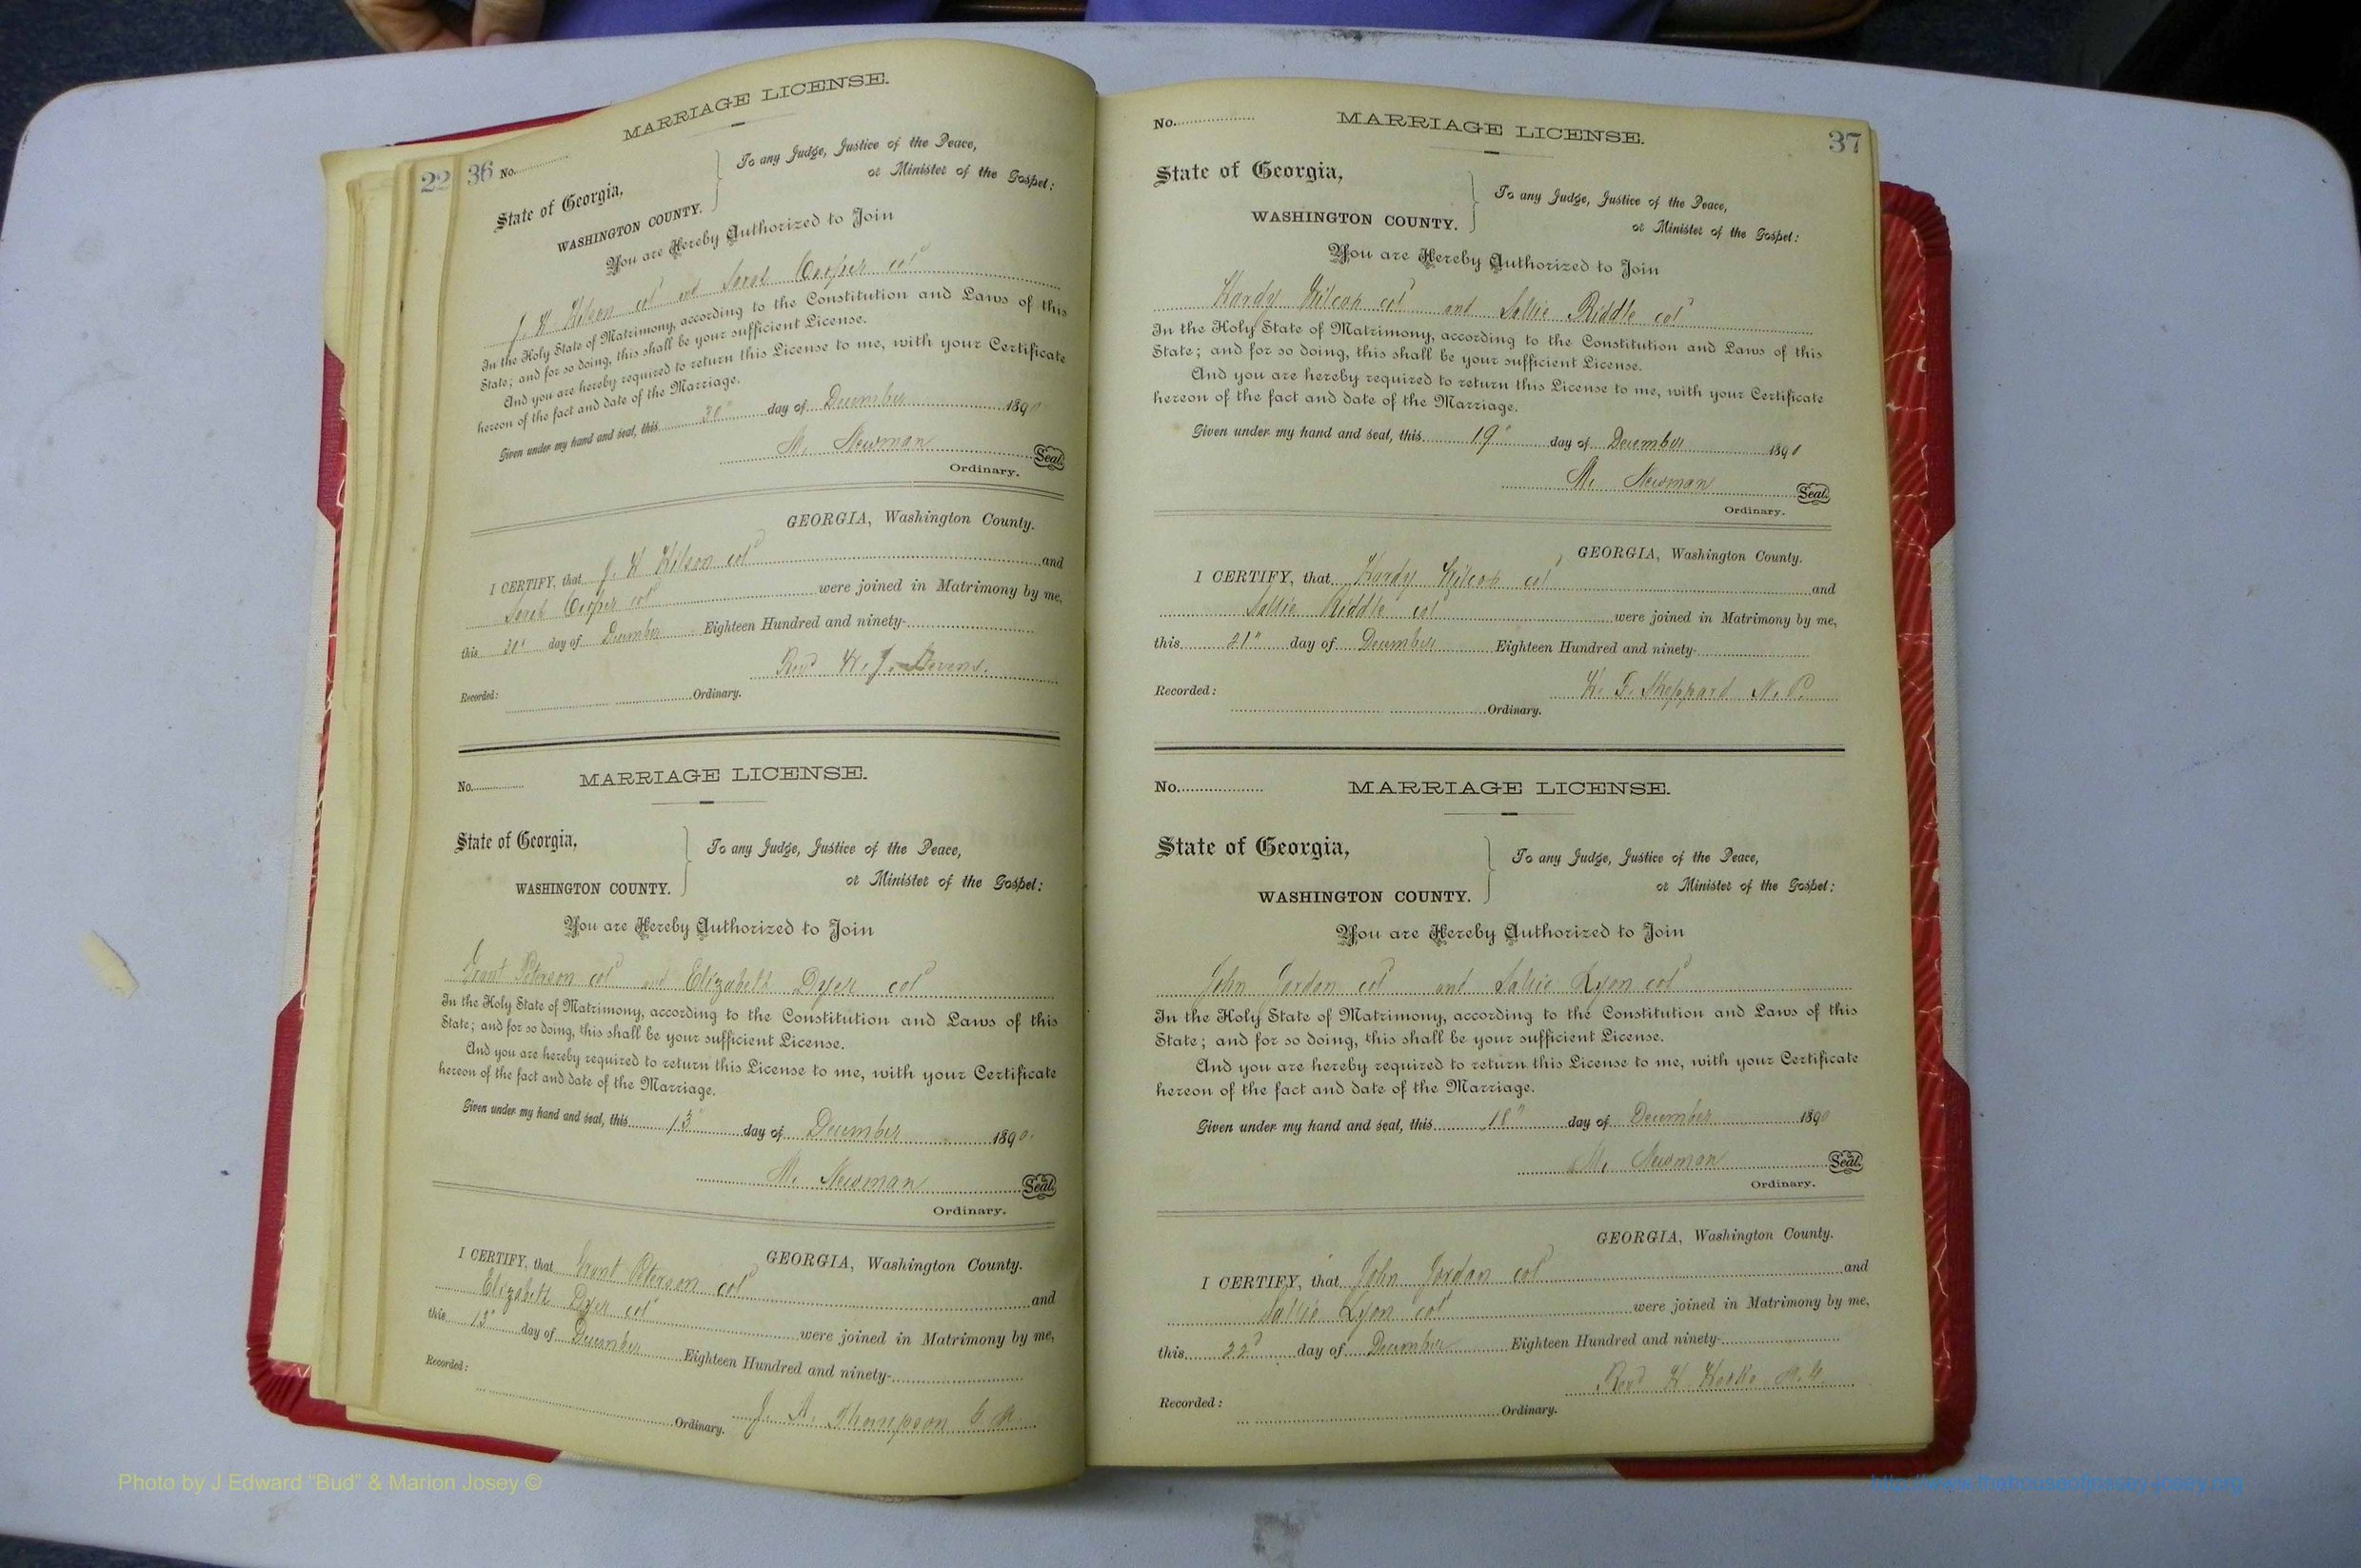 22
36 No.
MARRIAGE LICENSE.
State of Georgia,
WASHINGTON COUNTY.
To any Judge, Justice of the Peace,
or Minister of the Gospel:
You are Hereby Authorized to Join
J. W Wilson col and Sarah Cooper col
In the Holy State of Matrimony, according to the Constitution and Laws of this
State; and for so doing, this shall be your sufficient License.
And you are hereby required to return this License to me, with your Certificate
hereon of the fact and date of the Marriage.
Given under my hand and seal, this 30" day of December 1890
M. Newman Seal.
Ordinary.
GEORGIA, Washington County.
I CERTIFY, that J. W Wilson col and
Sarah Cooper col were joined in Matrimony by me,
this day of December Eighteen Hundred and ninety-
Revd W. J. Stevens.
Recorded: Ordinary.
No.
MARRIAGE LICENSE.
State of Georgia,
WASHINGTON COUNTY.
To any Judge, Justice of the Peace,
or Minister of the Gospel:
You are Hereby Authorized to Join
Grant Peterson col and Elizabeth Dyer col
In the Holy State of Matrimony, according to the Constitution and Laws of this
State; and for so doing, this shall be your sufficient License.
And you are hereby required to return this License to me, with your Certificate
hereon of the fact and date of the Marriage.
Given under my hand and seal, this 13" day of December 1890.
M. Newman Seal.
Ordinary.
GEORGIA, Washington County.
I CERTIFY, that Grant Peterson col and
Elizabeth Dyer col were joined in Matrimony by me,
this 13" day of December Eighteen Hundred and ninety-
J. A. Thompson
Recorded: Ordinary.
No.
MARRIAGE LICENSE.
37
State of Georgia,
WASHINGTON COUNTY.
To any Judge, Justice of the Peace,
or Minister of the Gospel:
You are Hereby Authorized to Join
Hardy Wilcox col and Sallie Riddle col
In the Holy State of Matrimony, according to the Constitution and Laws of this
State; and for so doing, this shall be your sufficient License.
And you are hereby required to return this License to me, with your Certificate
hereon of the fact and date of the Marriage.
Given under my hand and seal, this 19" day of December 1890
M. Newman Seal.
Ordinary.
GEORGIA, Washington County.
I CERTIFY, that Hardy Wilcox col and
Sallie Riddle col were joined in Matrimony by me,
this 21" day of December Eighteen Hundred and ninety-
W. F. Sheppard N. P.
Recorded: Ordinary.
No.
MARRIAGE LICENSE.
State of Georgia,
WASHINGTON COUNTY.
To any Judge, Justice of the Peace,
or Minister of the Gospel:
You are Hereby Authorized to Join
John Jordan col and Sallie Lyon col
In the Holy State of Matrimony, according to the Constitution and Laws of this
State; and for so doing, this shall be your sufficient License.
And you are hereby required to return this License to me, with your Certificate
hereon of the fact and date of the Marriage.
Given under my hand and seal, this 18" day of December 1890
M. Newman Seal.
Ordinary.
GEORGIA, Washington County.
I CERTIFY, that John Jordan col and
Sallie Lyon col were joined in Matrimony by me,
this 22d day of December Eighteen Hundred and ninety-
Revd W M.G.
Recorded: Ordinary.
Photo by J Edward "Bud" & Marion Josey ©